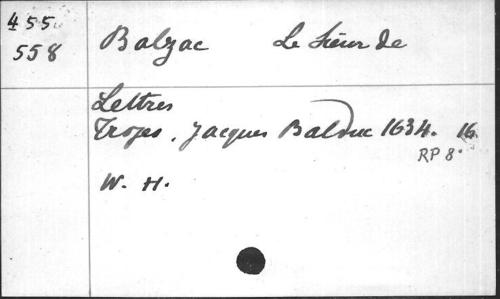 455
558
Balzac Le Sieur de
Lettres
Troyes. Jacques Balduc 1634. 16
RP 8°
W. H.